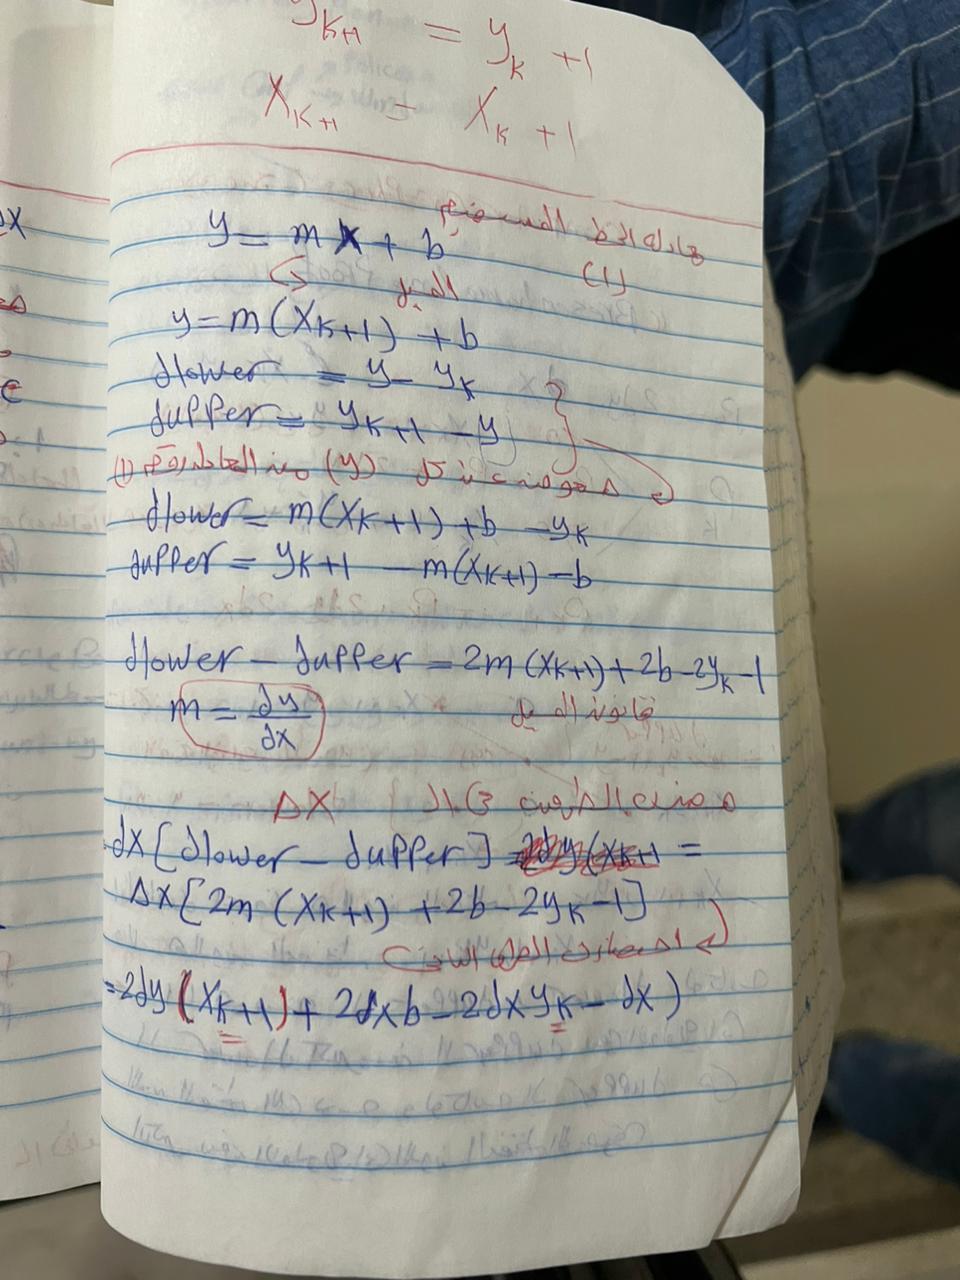 y_{K+1} = y_K + 1
X_{K+1} = X_K + 1
معادلة الخط المستقيم
y = mX + b (1)
الميل
y = m(X_K+1) + b
dlower = y - y_K
dupper = y_K+1 - y
نعوض عن كل (y) من المعادلة رقم (1)
dlower = m(X_K+1) + b - y_K
dupper = y_K+1 - m(X_K+1) - b
dlower - dupper = 2m(X_K+1) + 2b - 2y_K - 1
m = dy/dx قانون الميل
الطرفين ΔX
dx[dlower - dupper] =
ΔX[2m(X_K+1) + 2b - 2y_K - 1]
= 2dy(X_K+1) + 2dxb - 2dxy_K - dx)